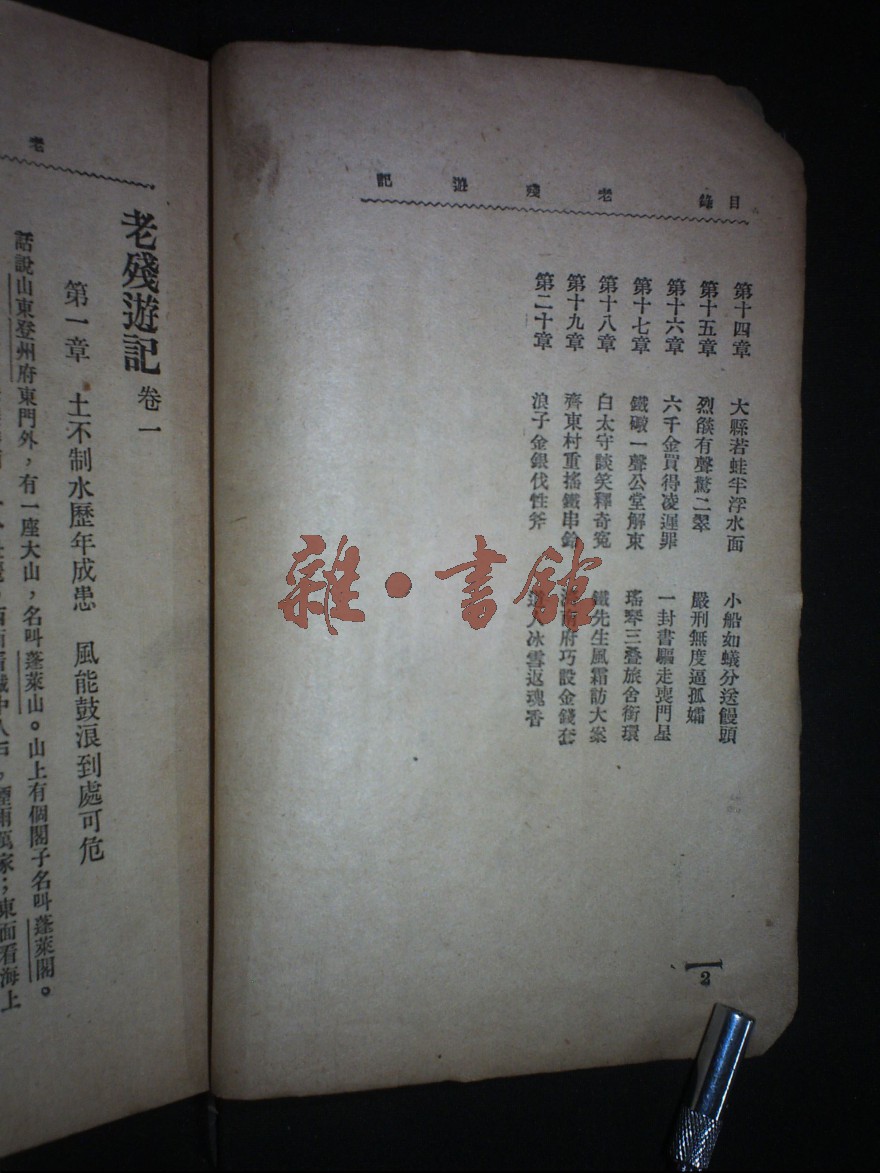 目錄 老殘遊記
第十四章 大縣若蛙半浮水面 小船如蟻分送饅頭
第十五章 烈燄有聲驚二翠 嚴刑無度逼孤孀
第十六章 六千金買得凌遲罪 一封書驅走喪門星
第十七章 鐵礮一聲公堂解束 瑤琴三叠旅舍銜環
第十八章 白太守談笑釋奇冤 鐵先生風霜訪大案
第十九章 齊東村重搖鐵串鈴 濟南府巧設金錢套
第二十章 浪子金銀伐性斧 道人冰雪返魂香
2
雜・書館
老
老殘遊記 卷一
第一章 土不制水歷年成患 風能鼓浪到處可危
話說山東登州府東門外，有一座大山，名叫蓬萊山。山上有個閣子名叫蓬萊閣。
東面看海上